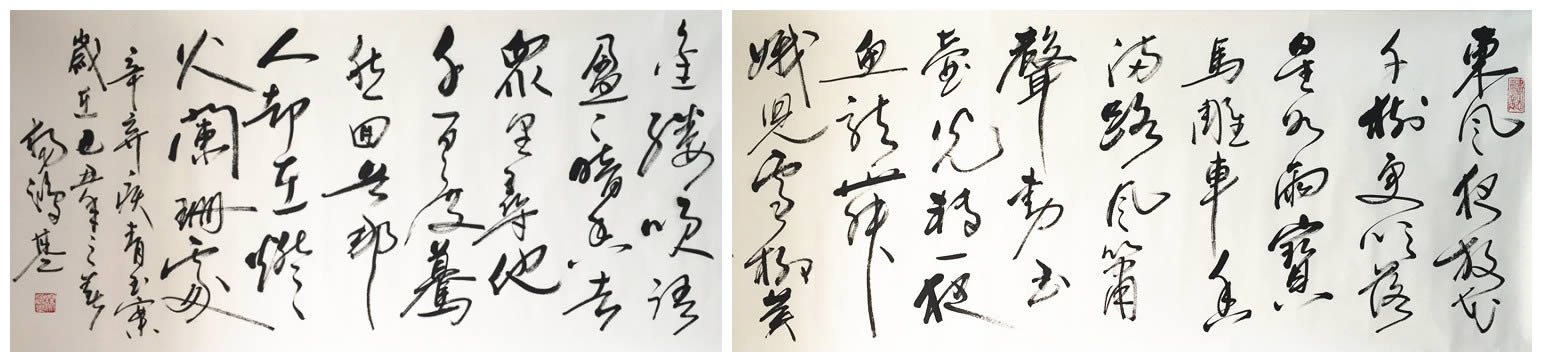 東風夜放花
千樹更吹落
星如雨寶
馬雕車香
滿路風簫
聲動玉
壺光轉一夜
魚龍舞
娥兒雪柳黃
金縷笑語
盈盈暗香去
眾里尋他
千百度驀
然回首那
人却在燈
火蘭珊處
辛弃疾青玉案
歲在己丑年之春
楊鴻基